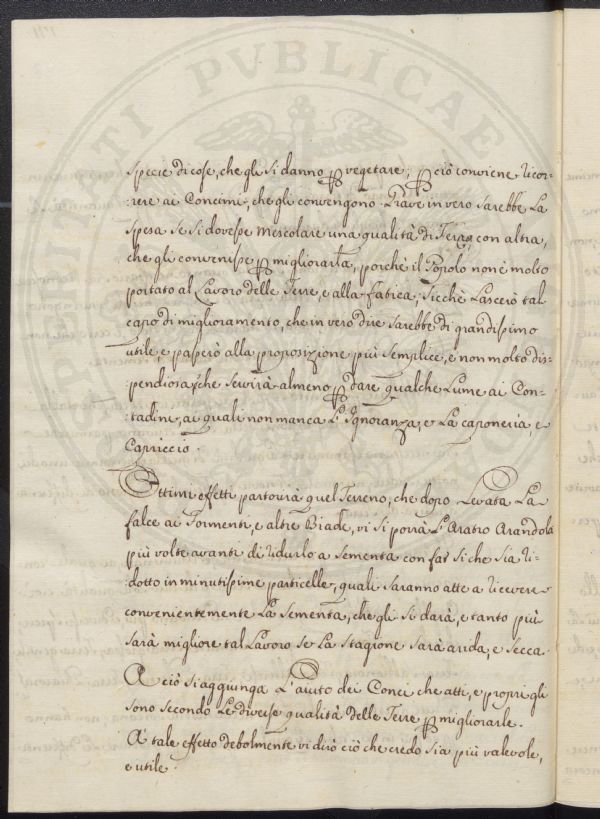 specie di cose, che gli si danno p vegetare; p ciò conviene ricor=
:rere ai Concimi, che gli convengono. Grave in vero sarebbe La
spesa se si dovesse mescolare una qualità di Terra, con altra,
che gli convenisse p migliorarla, poichè il Popolo non è molto
portato al Lavoro delle Terre, e alla fatica; Sicchè Lascerò tal
capo di miglioramento, che in vero dire sarebbe di grandissimo
utile, e passerò alla proposizione più semplice, e non molto dis=
:pendiosa, che servirà almeno p dare qualche Lume ai Con=
:tadini, ai quali non manca L'Ignoranza, e La caponeria, e
Capriccio.
Ottimi effetti partorirà quel Terreno, che dopo Levata La
falce ai Formenti, e altre Biade, vi si porrà L'Aratro Arandola
più volte avanti di ridurlo a sementa con far sì che sia ri=
:dotto in minutissime particelle, quali saranno atte a ricevere
convenientemente La sementa, che gli si darà, e tanto più
sarà migliore tal Lavoro se La stagione sarà arida, e secca.
A ciò si aggiunga L'aiuto dei Conci che atti, e propri gli
sono secondo Le diverse qualità delle Terre p migliorarle.
A tale effetto debolmente vi dirò ciò che credo sia più valevole,
e utile.
PVBLICAE